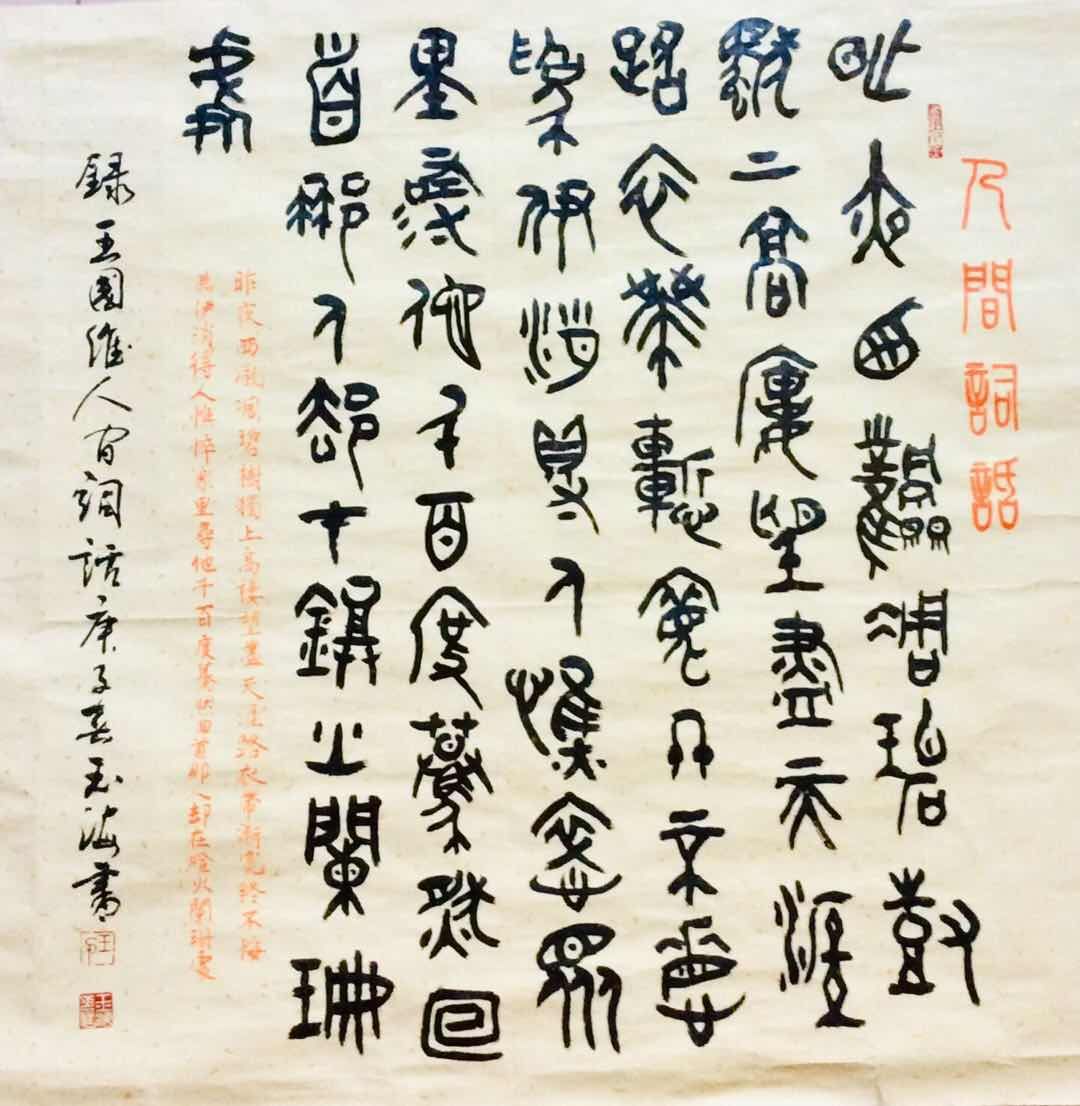 人間詞話
昨夜西風凋碧尌
獨上高廔望盡天涯
路衣帶漸寬終不悔
為伊消得人憔悴眾
里尋他千百度驀然回
首那人卻在鐙火闌珊
處
昨夜西風凋碧樹獨上高樓望盡天涯路衣帶漸寬終不悔
為伊消得人憔悴眾里尋他千百度驀然回首那人却在燈火闌珊處
録王國維人间詞話庚子春玉海書